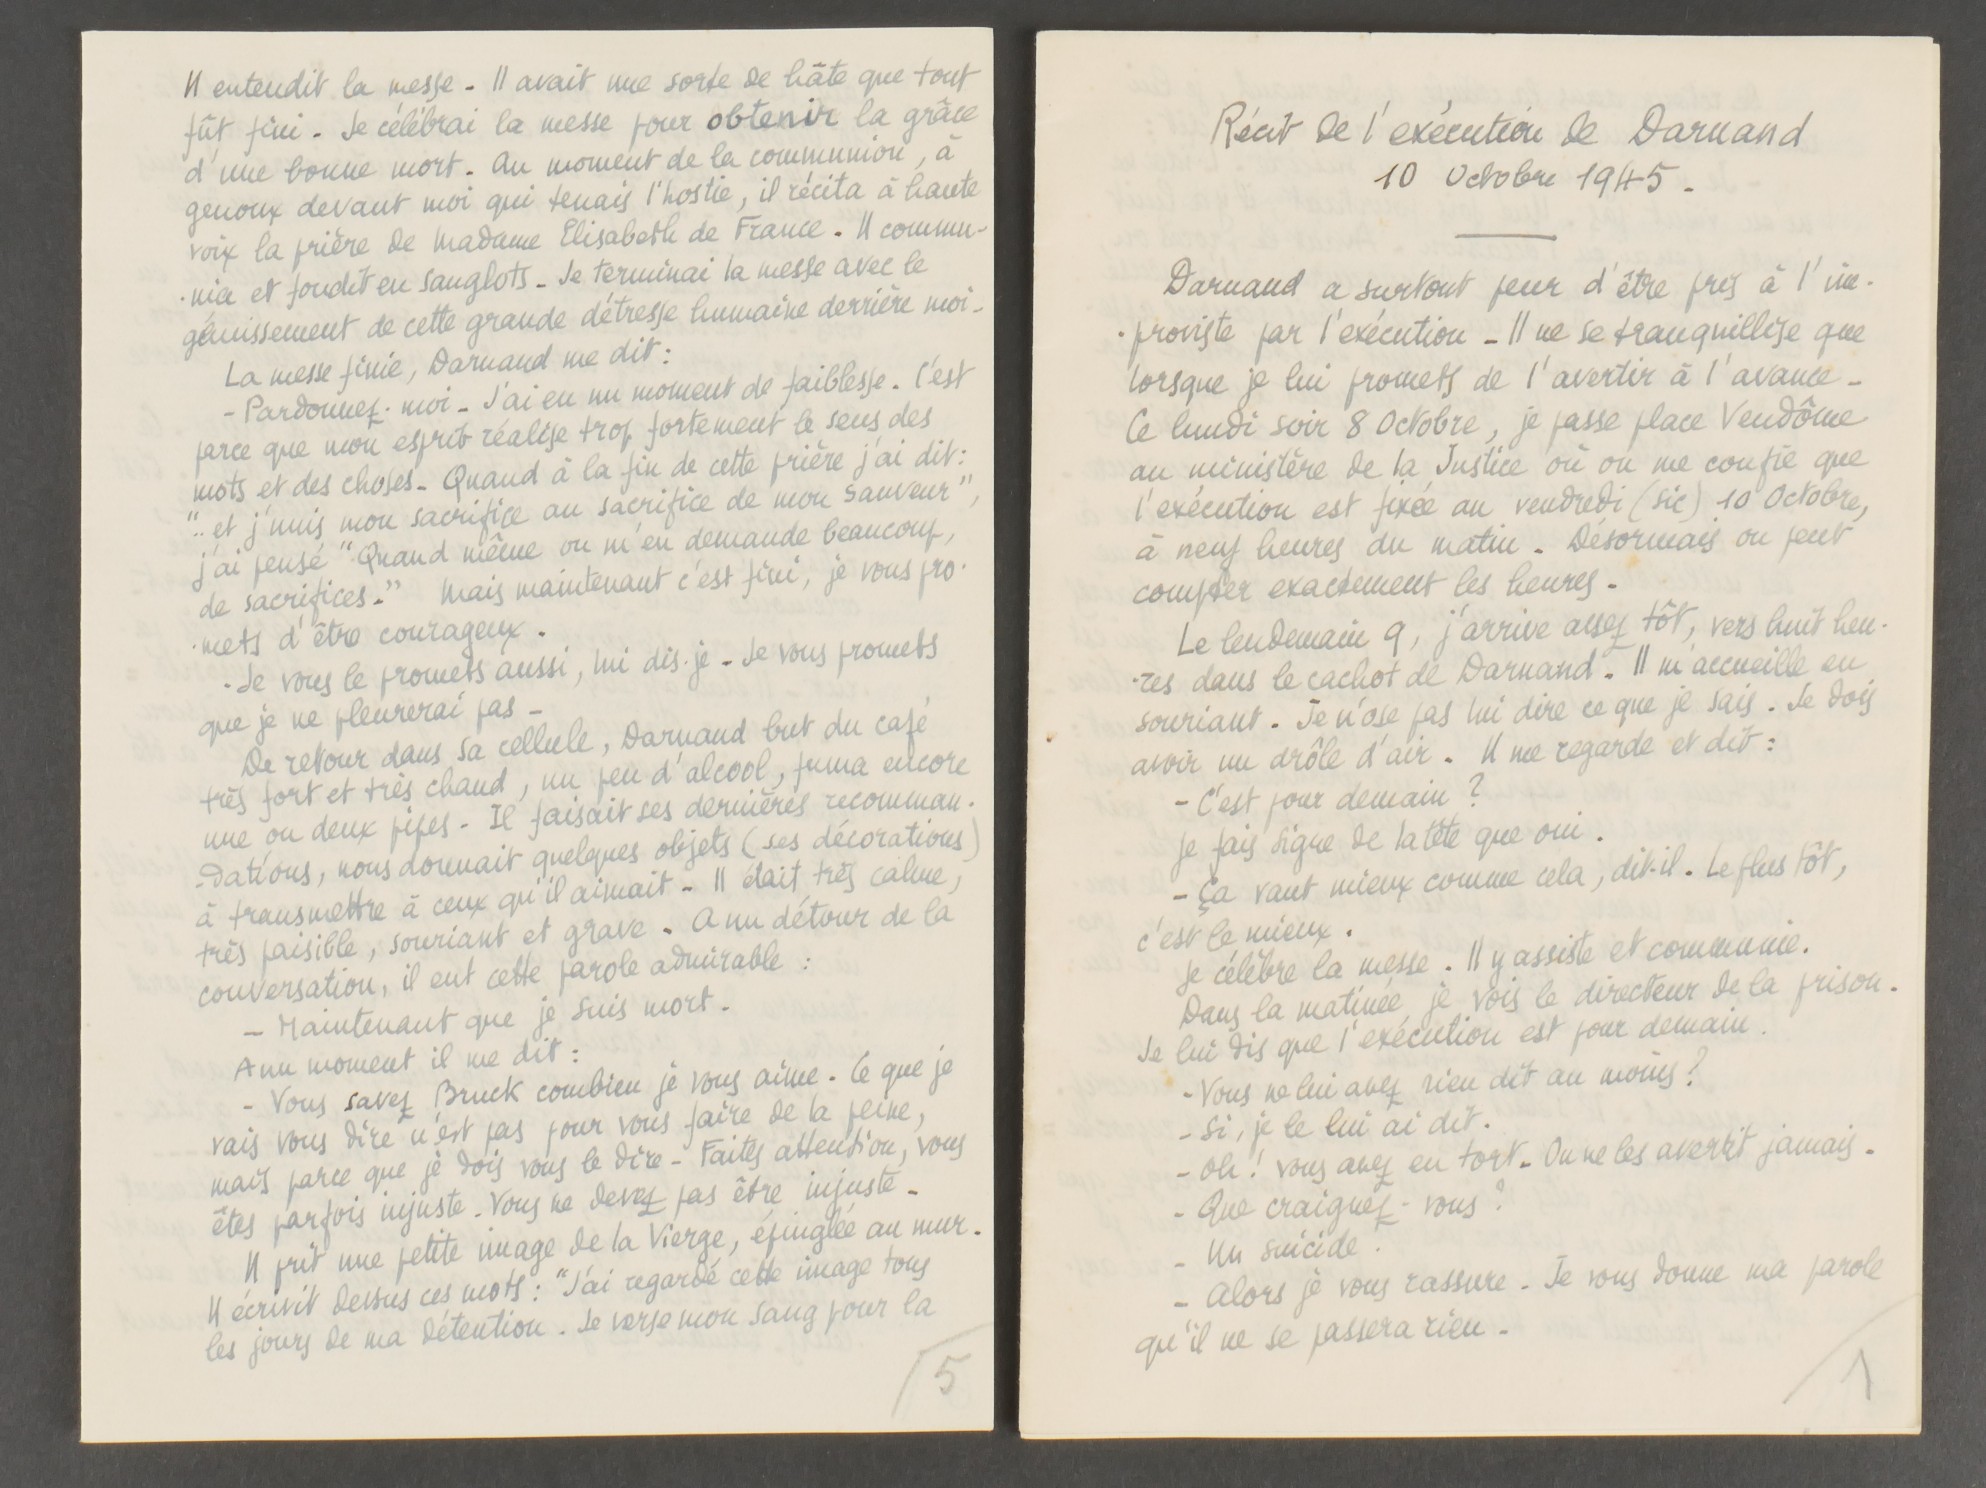 Il entendit la messe - Il avait une sorte de hâte que tout
fût fini - Je célébrai la messe pour obtenir la grâce
d'une bonne mort. Au moment de la communion, à
genoux devant moi qui tenais l'hostie, il récita à haute
voix la prière de Madame Elisabeth de France. Il commu-
-nia et fondit en sanglots - Je terminai la messe avec le
gémissement de cette grande détresse humaine derrière moi -
La messe finie, Darnand me dit :
- Pardonnez-moi - J'ai eu un moment de faiblesse. C'est
parce que mon esprit réalise trop fortement le sens des
mots et des choses - Quand à la fin de cette prière j'ai dit :
".. et j'unis mon sacrifice au sacrifice de mon Sauveur",
j'ai pensé "Quand même on m'en demande beaucoup,
de sacrifices." Mais maintenant c'est fini, je vous pro-
-mets d'être courageux.
- Je vous le promets aussi, lui dis-je - Je vous promets
que je ne pleurerai pas -
De retour dans sa cellule, Darnand but du café
très fort et très chaud, un peu d'alcool, fuma encore
une ou deux pipes - Il faisait ses dernières recomman-
-dations, nous donnait quelques objets (ses décorations)
à transmettre à ceux qu'il aimait - Il était très calme,
très paisible, souriant et grave. A un détour de la
conversation, il eut cette parole admirable :
- Maintenant que je suis mort -
A un moment il me dit :
- Vous savez Bruck combien je vous aime. Ce que je
vais vous dire n'est pas pour vous faire de la peine,
mais parce que je dois vous le dire - Faites attention, vous
êtes parfois injuste. Vous ne devez pas être injuste -
Il prit une petite image de la Vierge, épinglée au mur.
Il écrivit dessus ces mots : "J'ai regardé cette image tous
les jours de ma détention. Je verse mon sang pour la
5
Récit de l'exécution de Darnand
10 Octobre 1945 -
Darnand a surtout peur d'être pris à l'im-
-proviste par l'exécution - Il ne se tranquillise que
lorsque je lui promets de l'avertir à l'avance -
Ce lundi soir 8 Octobre, je passe place Vendôme
au ministère de la Justice où on me confie que
l'exécution est fixée au vendredi (sic) 10 Octobre,
à neuf heures du matin - Désormais on peut
compter exactement les heures -
Le lendemain 9, j'arrive assez tôt, vers huit heu-
-res dans le cachot de Darnand. Il m'accueille en
souriant. Je n'ose pas lui dire ce que je sais. Je dois
avoir un drôle d'air. Il me regarde et dit :
- C'est pour demain ?
Je fais signe de la tête que oui.
- Ça vaut mieux comme cela, dit-il. Le plus tôt,
c'est le mieux.
Je célèbre la messe. Il y assiste et communie.
Dans la matinée, je vois le directeur de la prison.
Je lui dis que l'exécution est pour demain.
- Vous ne lui avez rien dit au moins ?
- Si, je le lui ai dit.
- Oh ! vous avez eu tort - On ne les avertit jamais -
- Que craignez-vous ?
- Un suicide.
- Alors je vous rassure - Je vous donne ma parole
qu'il ne se passera rien -
1